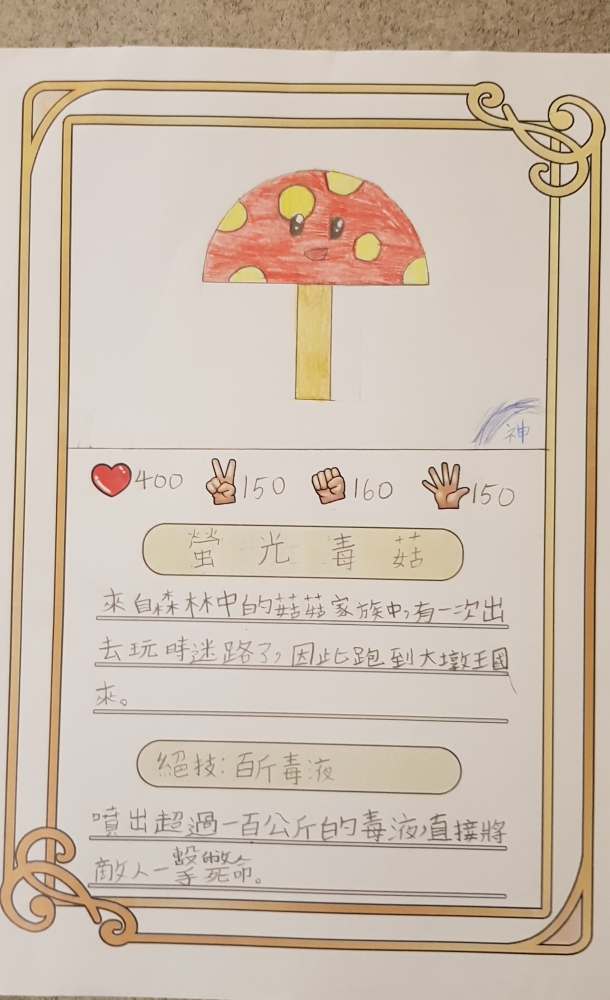 神
400 150 160 150
螢光毒菇
來自森林中的菇菇家族中,有一次出
去玩時迷路了,因此跑到大墩王國
來。
絕技:百斤毒液
噴出超過一百公斤的毒液,直接將
敵人一擊致命。